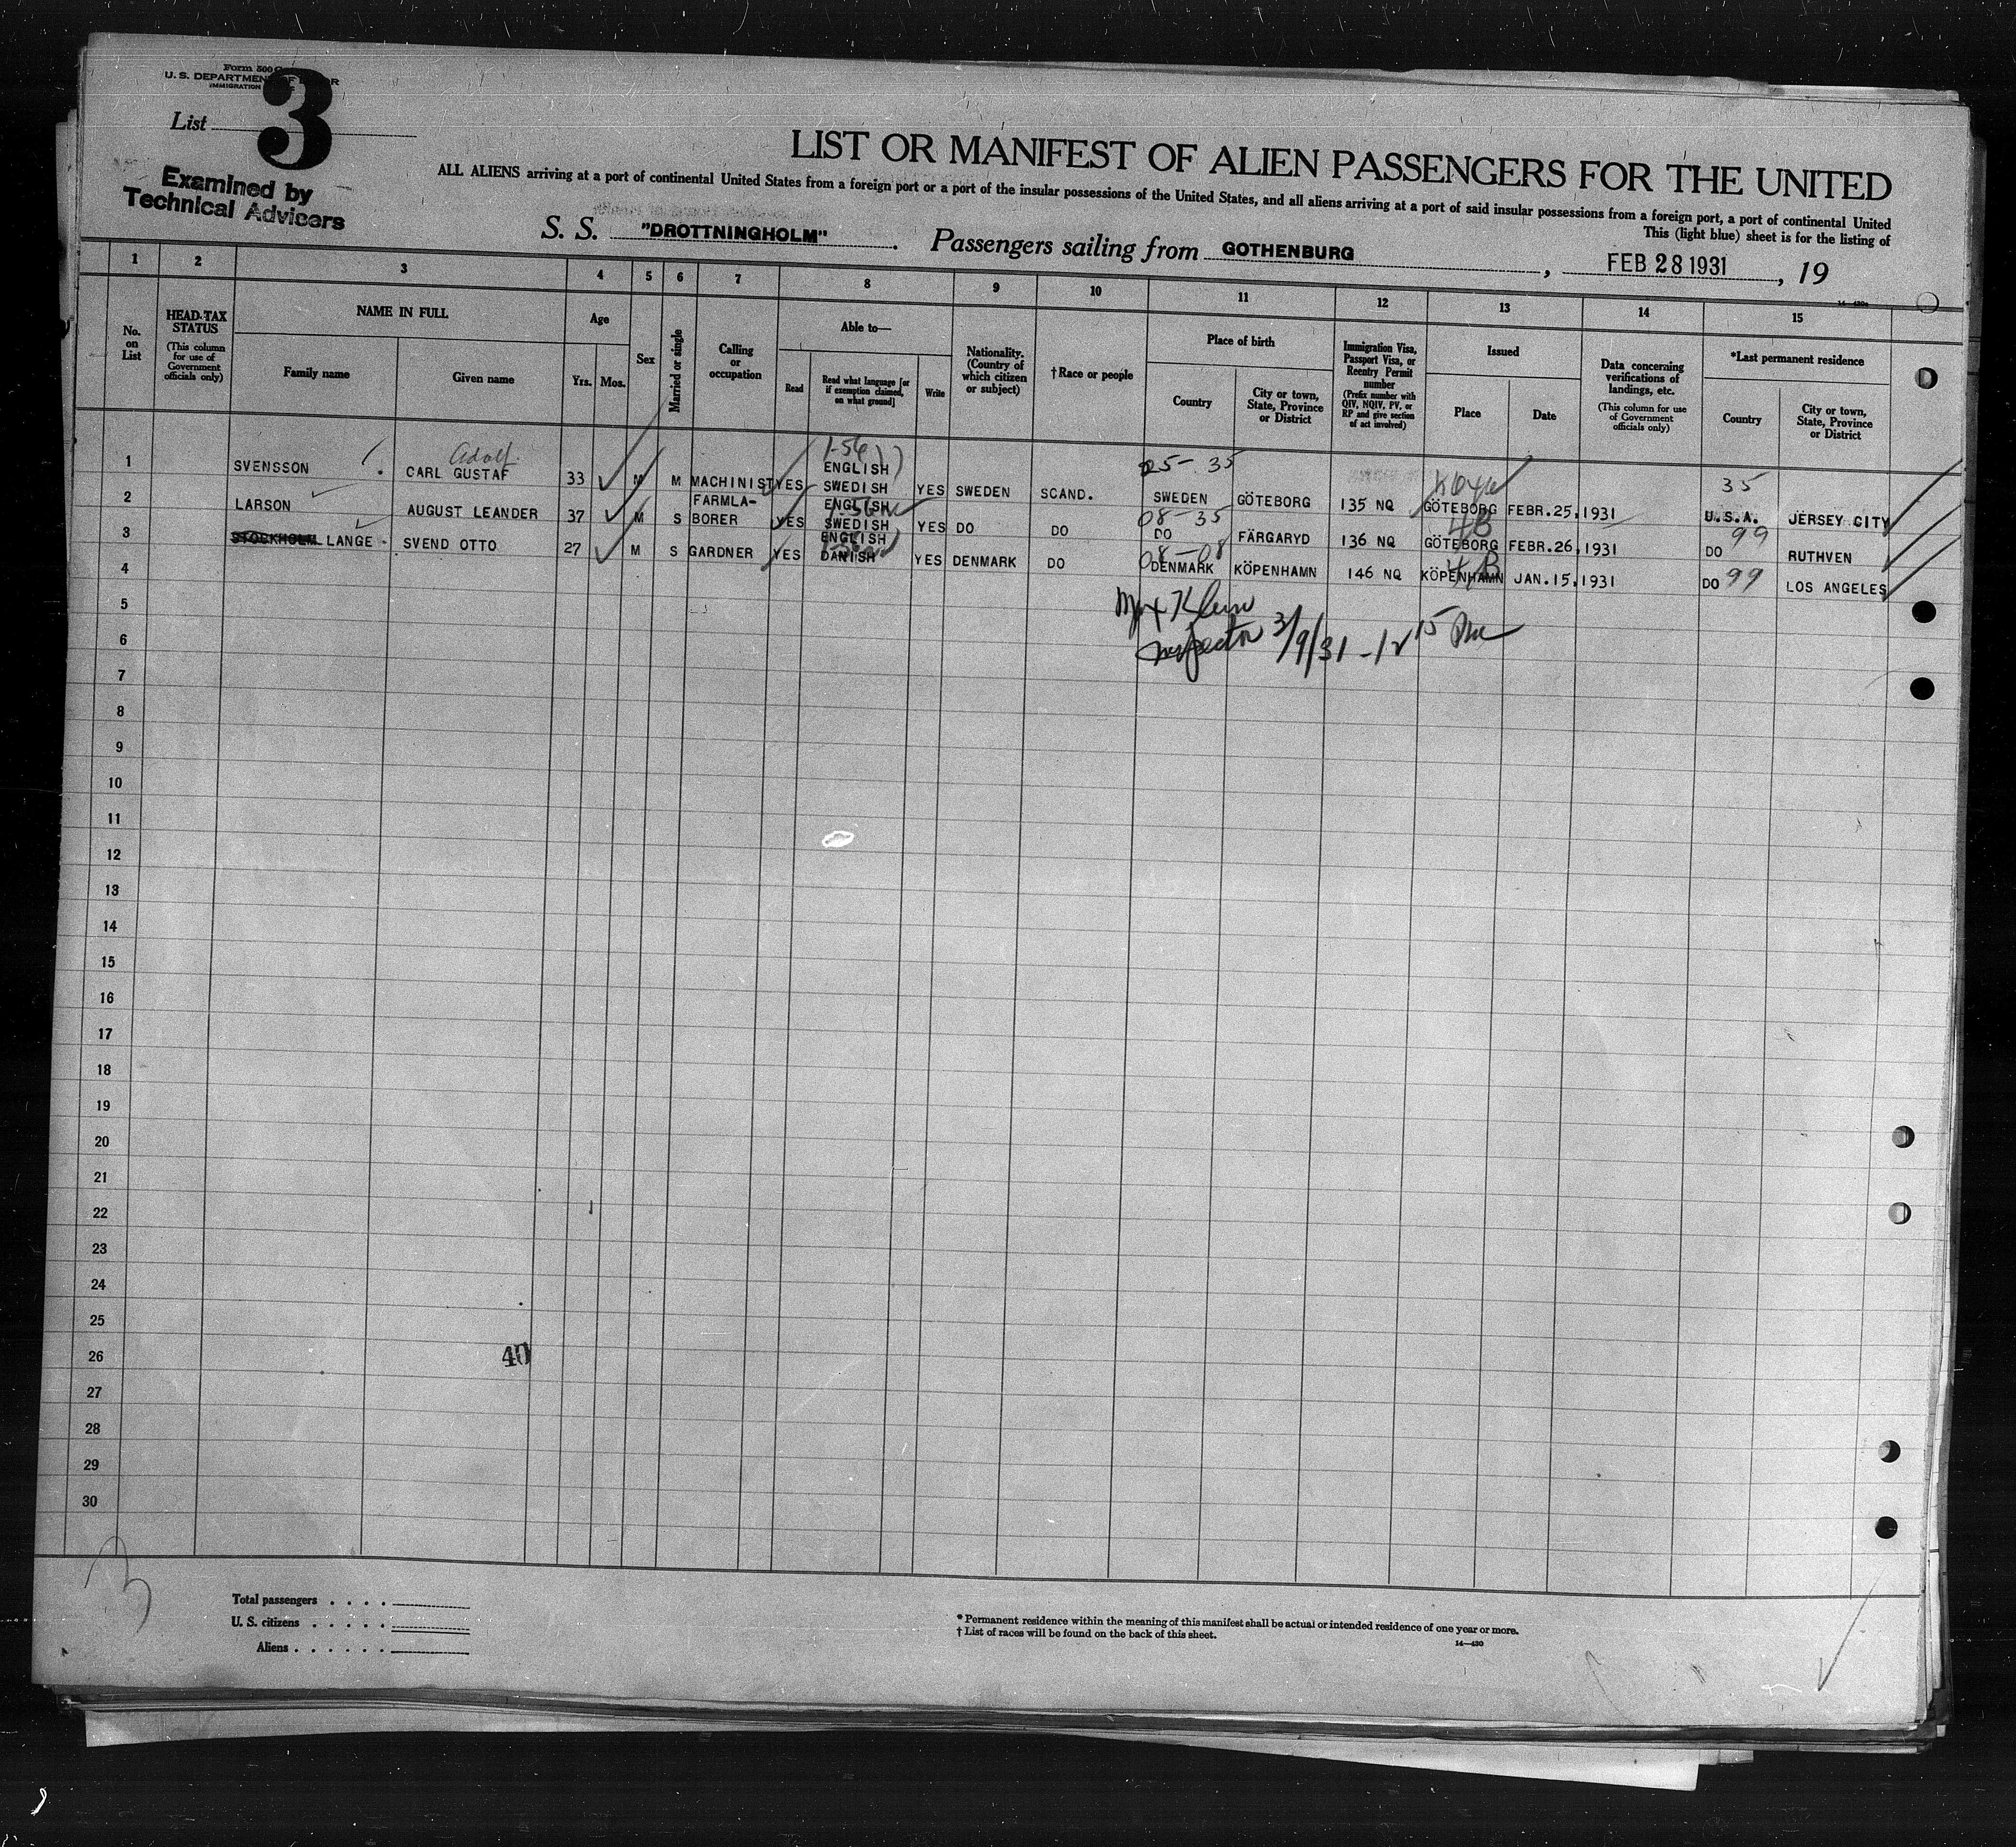 Form 500
U. S. DEPARTMENT OF LABOR
IMMIGRATION
List 3
Examined by
Technical Advisers
LIST OR MANIFEST OF ALIEN PASSENGERS FOR THE UNITED
ALL ALIENS arriving at a port of continental United States from a foreign port or a port of the insular possessions of the United States, and all aliens arriving at a port of said insular possessions from a foreign port, a port of continental United
This (light blue) sheet is for the listing of
S. S. "DROTTNINGHOLM" . Passengers sailing from GOTHENBURG , FEB 28 1931 , 19
1 2 3 4 5 6 7 8 9 10 11 12 13 14 15
No. on List
HEAD-TAX STATUS
(This column for use of Government officials only)
NAME IN FULL
Family name
Given name
Age
Yrs. Mos.
Sex
Married or single
Calling or occupation
Able to—
Read
Read what language [or if exemption claimed, on what ground]
Write
Nationality. (Country of which citizen or subject)
†Race or people
Place of birth
Country
City or town, State, Province or District
Immigration Visa, Passport Visa, or Reentry Permit number
(Prefix number with QIV, NQIV, PV, or RP and give section of act involved)
Issued
Place
Date
Data concerning verifications of landings, etc.
(This column for use of Government officials only)
*Last permanent residence
Country
City or town, State, Province or District
Adolf
1-56
25-35
35
1 SVENSSON CARL GUSTAF 33 M M MACHINIST YES ENGLISH SWEDISH YES SWEDEN SCAND. SWEDEN GÖTEBORG 135 NQ GÖTEBORG FEBR.25,1931 U.S.A. JERSEY CITY
08-35
4B
99
2 LARSON AUGUST LEANDER 37 M S FARMLA-BORER YES ENGLISH SWEDISH YES DO DO DO FÄRGARYD 136 NQ GÖTEBORG FEBR.26,1931 DO RUTHVEN
08-08
4B
99
3 STOCKHOLM LANGE SVEND OTTO 27 M S GARDNER YES ENGLISH DANISH YES DENMARK DO DENMARK KÖPENHAMN 146 NQ KÖPENHAMN JAN.15,1931 DO LOS ANGELES
4
Max Klein
5
Inspector 3/9/31 - 12 15 PM
6
7
8
9
10
11
12
13
14
15
16
17
18
19
20
21
22
23
24
25
26
40
27
28
29
30
3
Total passengers . . . .
U. S. citizens . . . . .
Aliens . . . . . .
* Permanent residence within the meaning of this manifest shall be actual or intended residence of one year or more.
† List of races will be found on the back of this sheet.
14—430